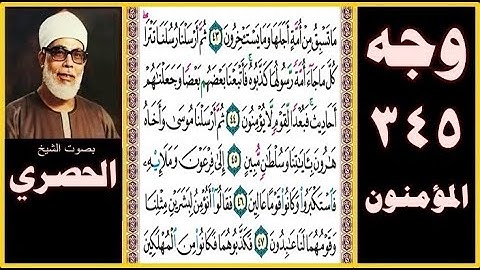 مَا تَسْبِقُ مِنْ أُمَّةٍ أَجَلَهَا وَمَا يَسْتَـْٔخِرُونَ ٤٣ ثُمَّ أَرْسَلْنَا رُسُلَنَا تَتْرَا
كُلَّ مَا جَآءَ أُمَّةً رَّسُولُهَا كَذَّبُوهُ فَأَتْبَعْنَا بَعْضَهُم بَعْضًا وَجَعَلْنَٰهُمْ
أَحَادِيثَ فَبُعْدًا لِّقَوْمٍ لَّا يُؤْمِنُونَ ٤٤ ثُمَّ أَرْسَلْنَا مُوسَىٰ وَأَخَاهُ
هَٰرُونَ بِـَٔايَٰتِنَا وَسُلْطَٰنٍ مُّبِينٍ ٤٥ إِلَىٰ فِرْعَوْنَ وَمَلَإِي۟هِۦ
فَٱسْتَكْبَرُوا۟ وَكَانُوا۟ قَوْمًا عَالِينَ ٤٦ فَقَالُوٓا۟ أَنُؤْمِنُ لِبَشَرَيْنِ مِثْلِنَا
وَقَوْمُهُمَا لَنَا عَٰبِدُونَ ٤٧ فَكَذَّبُوهُمَا فَكَانُوا۟ مِنَ ٱلْمُهْلَكِينَ
وجه
٣٤٥
المؤمنون
بصوت الشيخ
الحصري